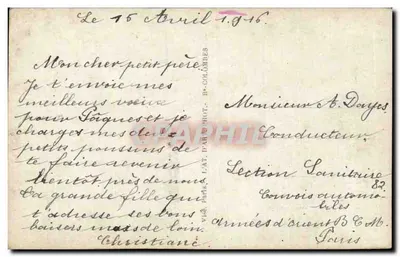 Le 16 Avril 1916
Mon cher petit père
Je t'envoie mes
meilleurs vœux
pour Pâques et je
charges mes deux
petits poussins de
te faire revenir
bientôt près de nous
ta grande fille qui
t adresse ses bons
baisers mais de loin.
Christiane
Monsieur A. Dayes
Conducteur
Section Sanitaire
82
Convois automo
biles
Armées d'orient B C M
Paris